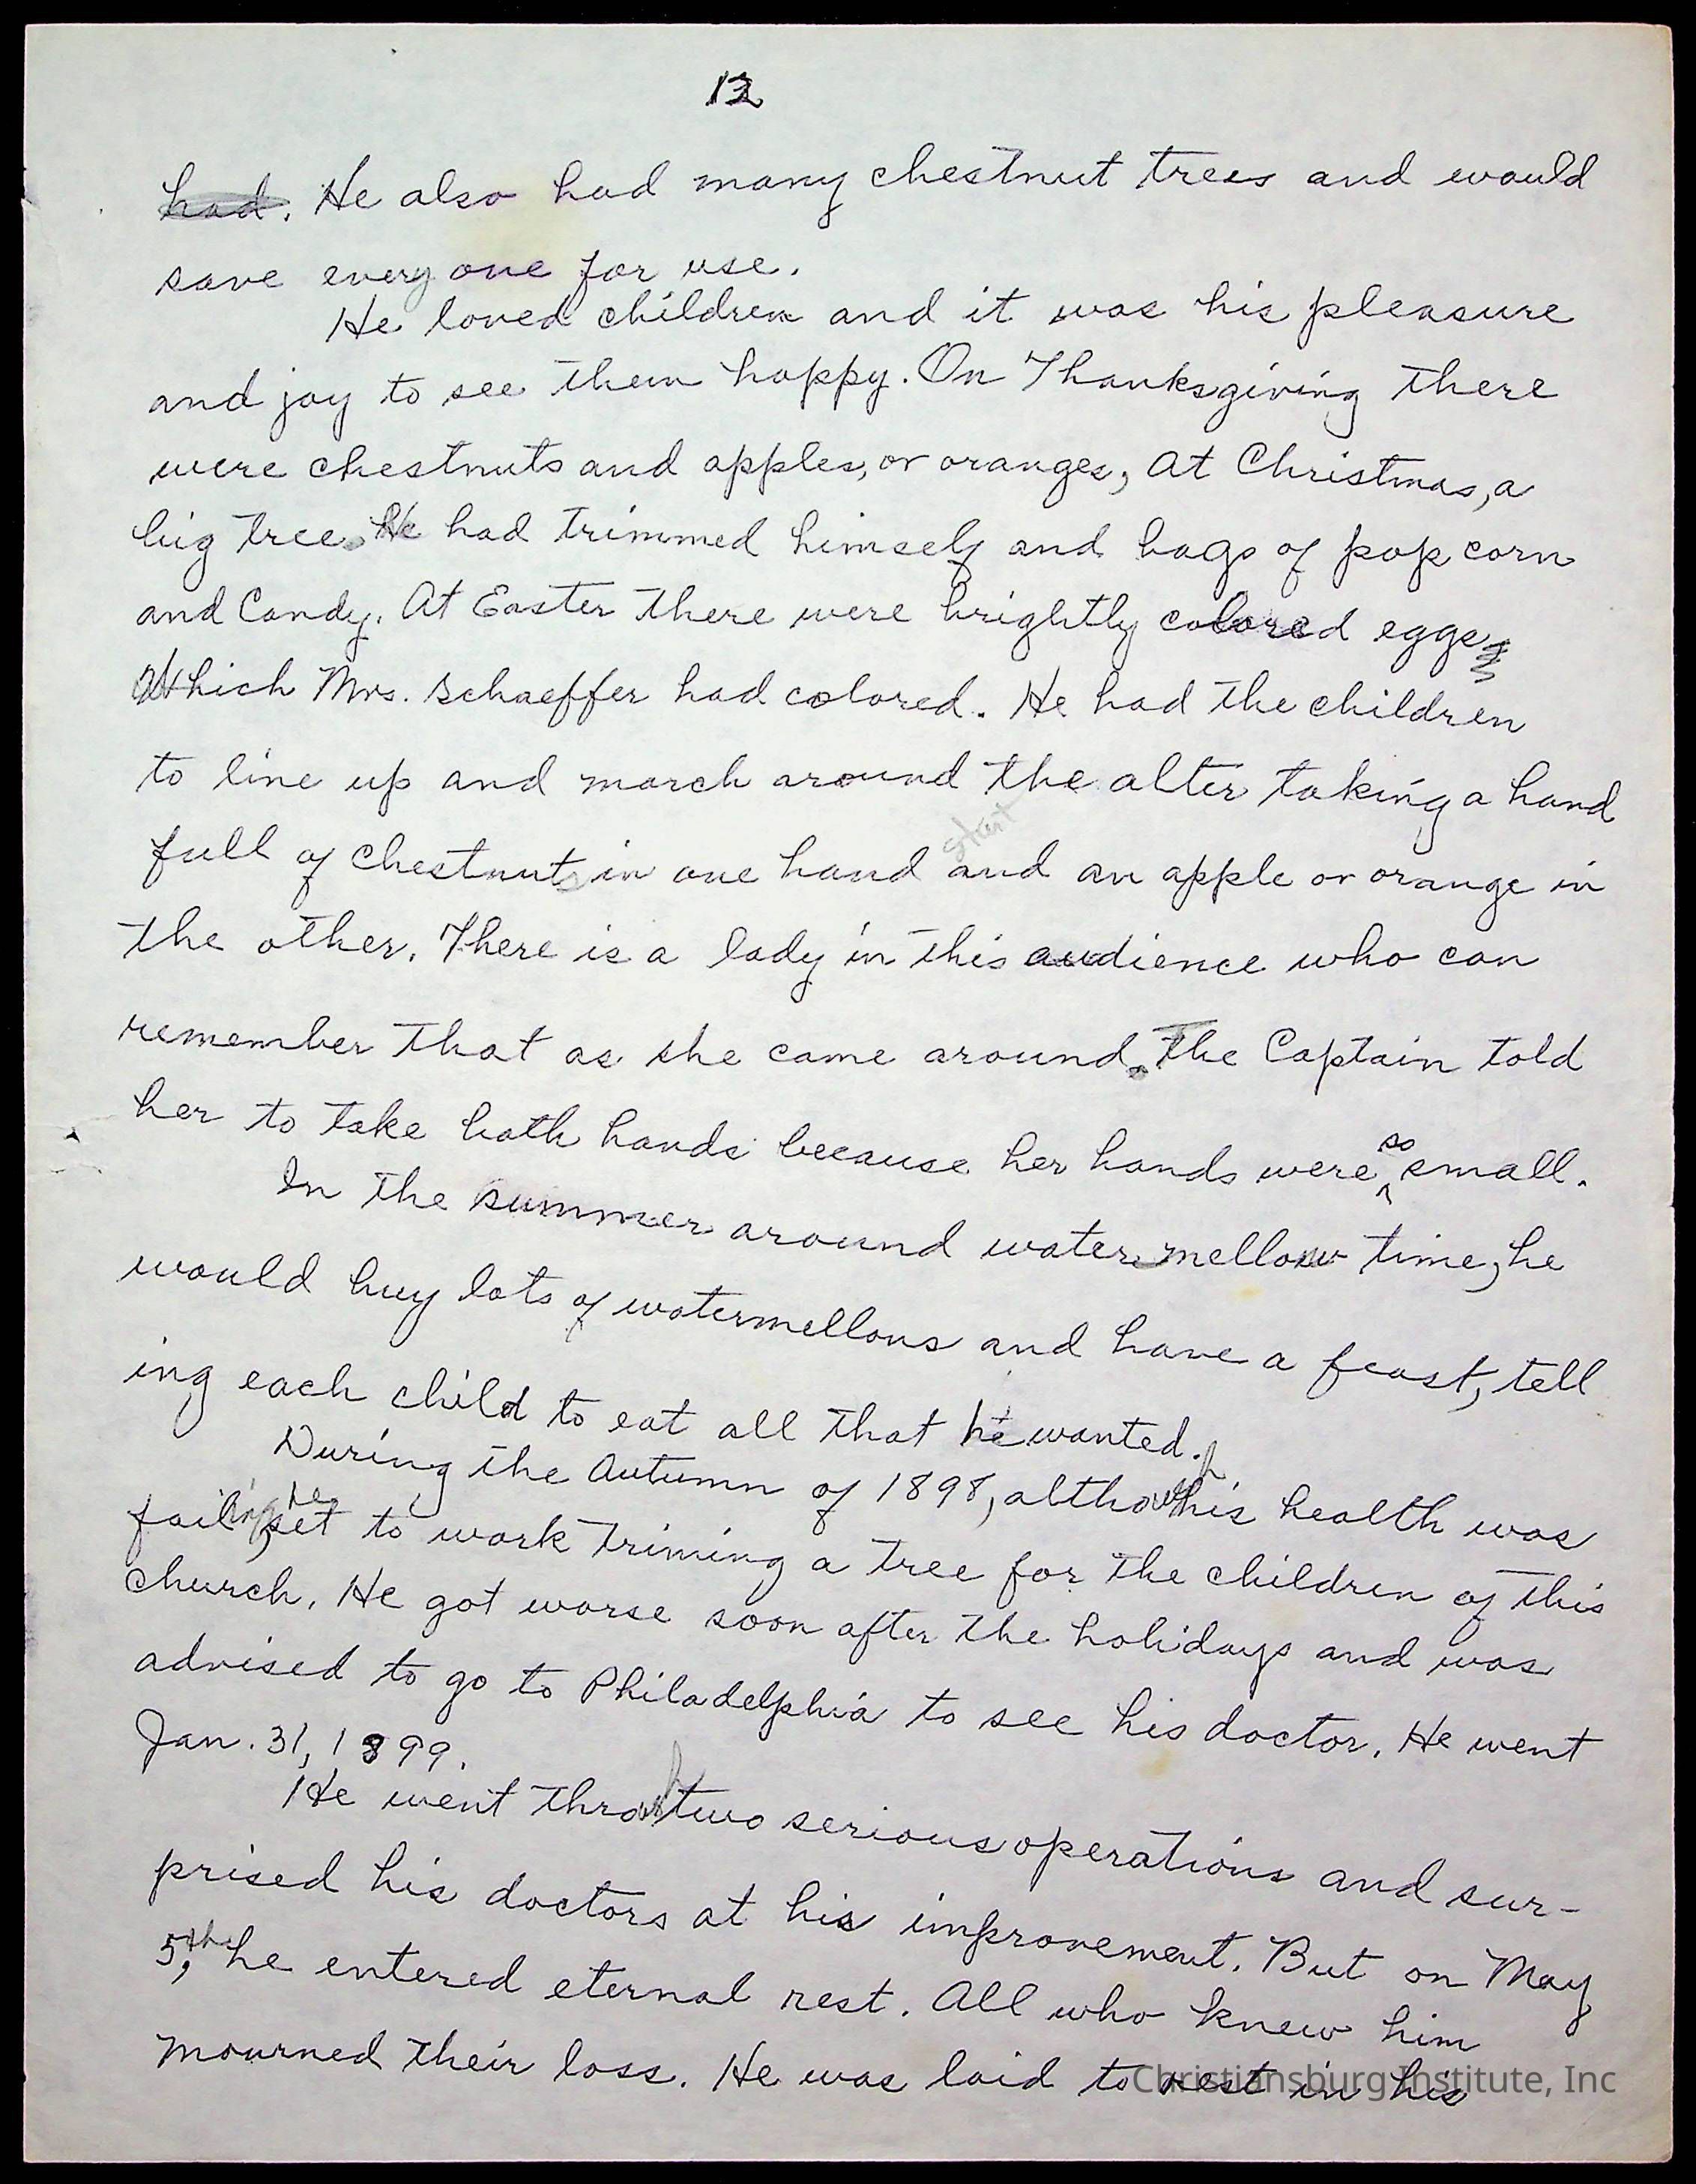 12
had. He also had many chestnut trees and would
save every one for use.
He loved children and it was his pleasure
and joy to see them happy. On Thanksgiving there
were chestnuts and apples, or oranges, At Christmas, a
big tree. He had trimmed himself and bags of pop corn
and Candy. At Easter there were brightly colored eggs
Which Mrs. Schaeffer had colored. He had the children
to line up and march around the alter taking a hand
start
full of chestnuts in one hand and an apple or orange in
the other. There is a lady in this audience who can
remember that as she came around. The Captain told
her to take both hands because her hands were so small.
In the summer around watermellow time, he
would buy lots of watermellons and have a feast, tell
ing each child to eat all that he wanted.
During the Autumn of 1898, although his health was
failing, he set to work triming a tree for the children of this
church. He got worse soon after the holidays and was
advised to go to Philadelphia to see his doctor. He went
Jan. 31, 1899.
He went through two serious operations and sur-
prised his doctors at his improvement. But on May
5th, he entered eternal rest. All who knew him
mourned their loss. He was laid to rest in his
Christiansburg Institute, Inc